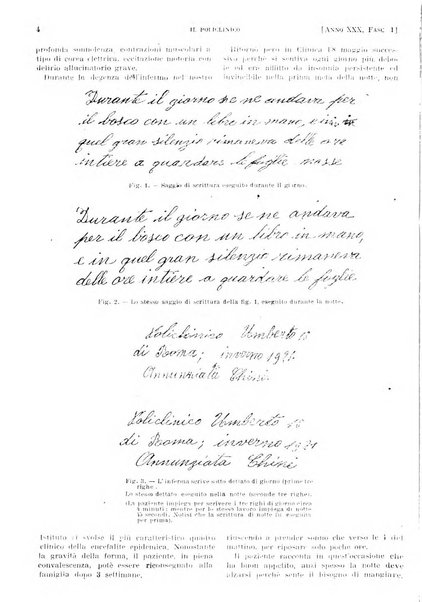 4 IL POLICLINICO [ANNO XXX, FASC. 1]
profonda sonnolenza contrazioni muscolari a
tipo di corea elettrica, eccitazione motoria con
delirio allucinatorio grave.
Durante la degenza dell'infermo nel nostro
Ritorno però in Clinica 18 maggio succes-
sivo perchè si sente ogni giorno più deperire
per insonnia persistente ed
invincibile nella prima metà della notte, non
Durante il giorno se ne andava per
il bosco con un libro in mano, e in
quel gran silenzio rimaneva delle ore
intiere a guardare le foglie mosse
Fig. 1. — Saggio di scrittura eseguito durante il giorno.
Durante il giorno se ne andava
per il bosco con un libro in mano,
e in quel gran silenzio rimaneva
delle ore intiere a guardare le foglie
Fig. 2. — Lo stesso saggio di scrittura della fig. 1, eseguito durante la notte.
Policlinico Umberto 1º
di Roma; inverno 1921
Annunziata Chini.
Policlinico Umberto 1º
di Roma; inverno 1921
Annunziata Chini
Fig. 3. — L'inferma scrive sotto dettato di giorno (prime tre
righe).
Lo stesso dettato eseguito nella notte (seconde tre righe).
(La paziente impiega per scrivere di giorno circa
4 minuti; mentre per lo stesso lavoro impiega di notte
45 secondi. Notisi che la scrittura di notte fu eseguita
per prima).
Istituto si svolse il più caratteristico quadro
clinico della encefalite epidemica. Nonostante
la gravità della forma, il paziente, in piena
convalescenza, potè essere riconsegnato alla
famiglia dopo 3 settimane.
riuscendo a prender sonno che verso le 4 del
mattino, per riposare solo poche ore.
Il paziente racconta in quest'occasione che
ha buon appetito, anzi spesso la notte deve
alzarsi perchè sente il bisogno di mangiare,